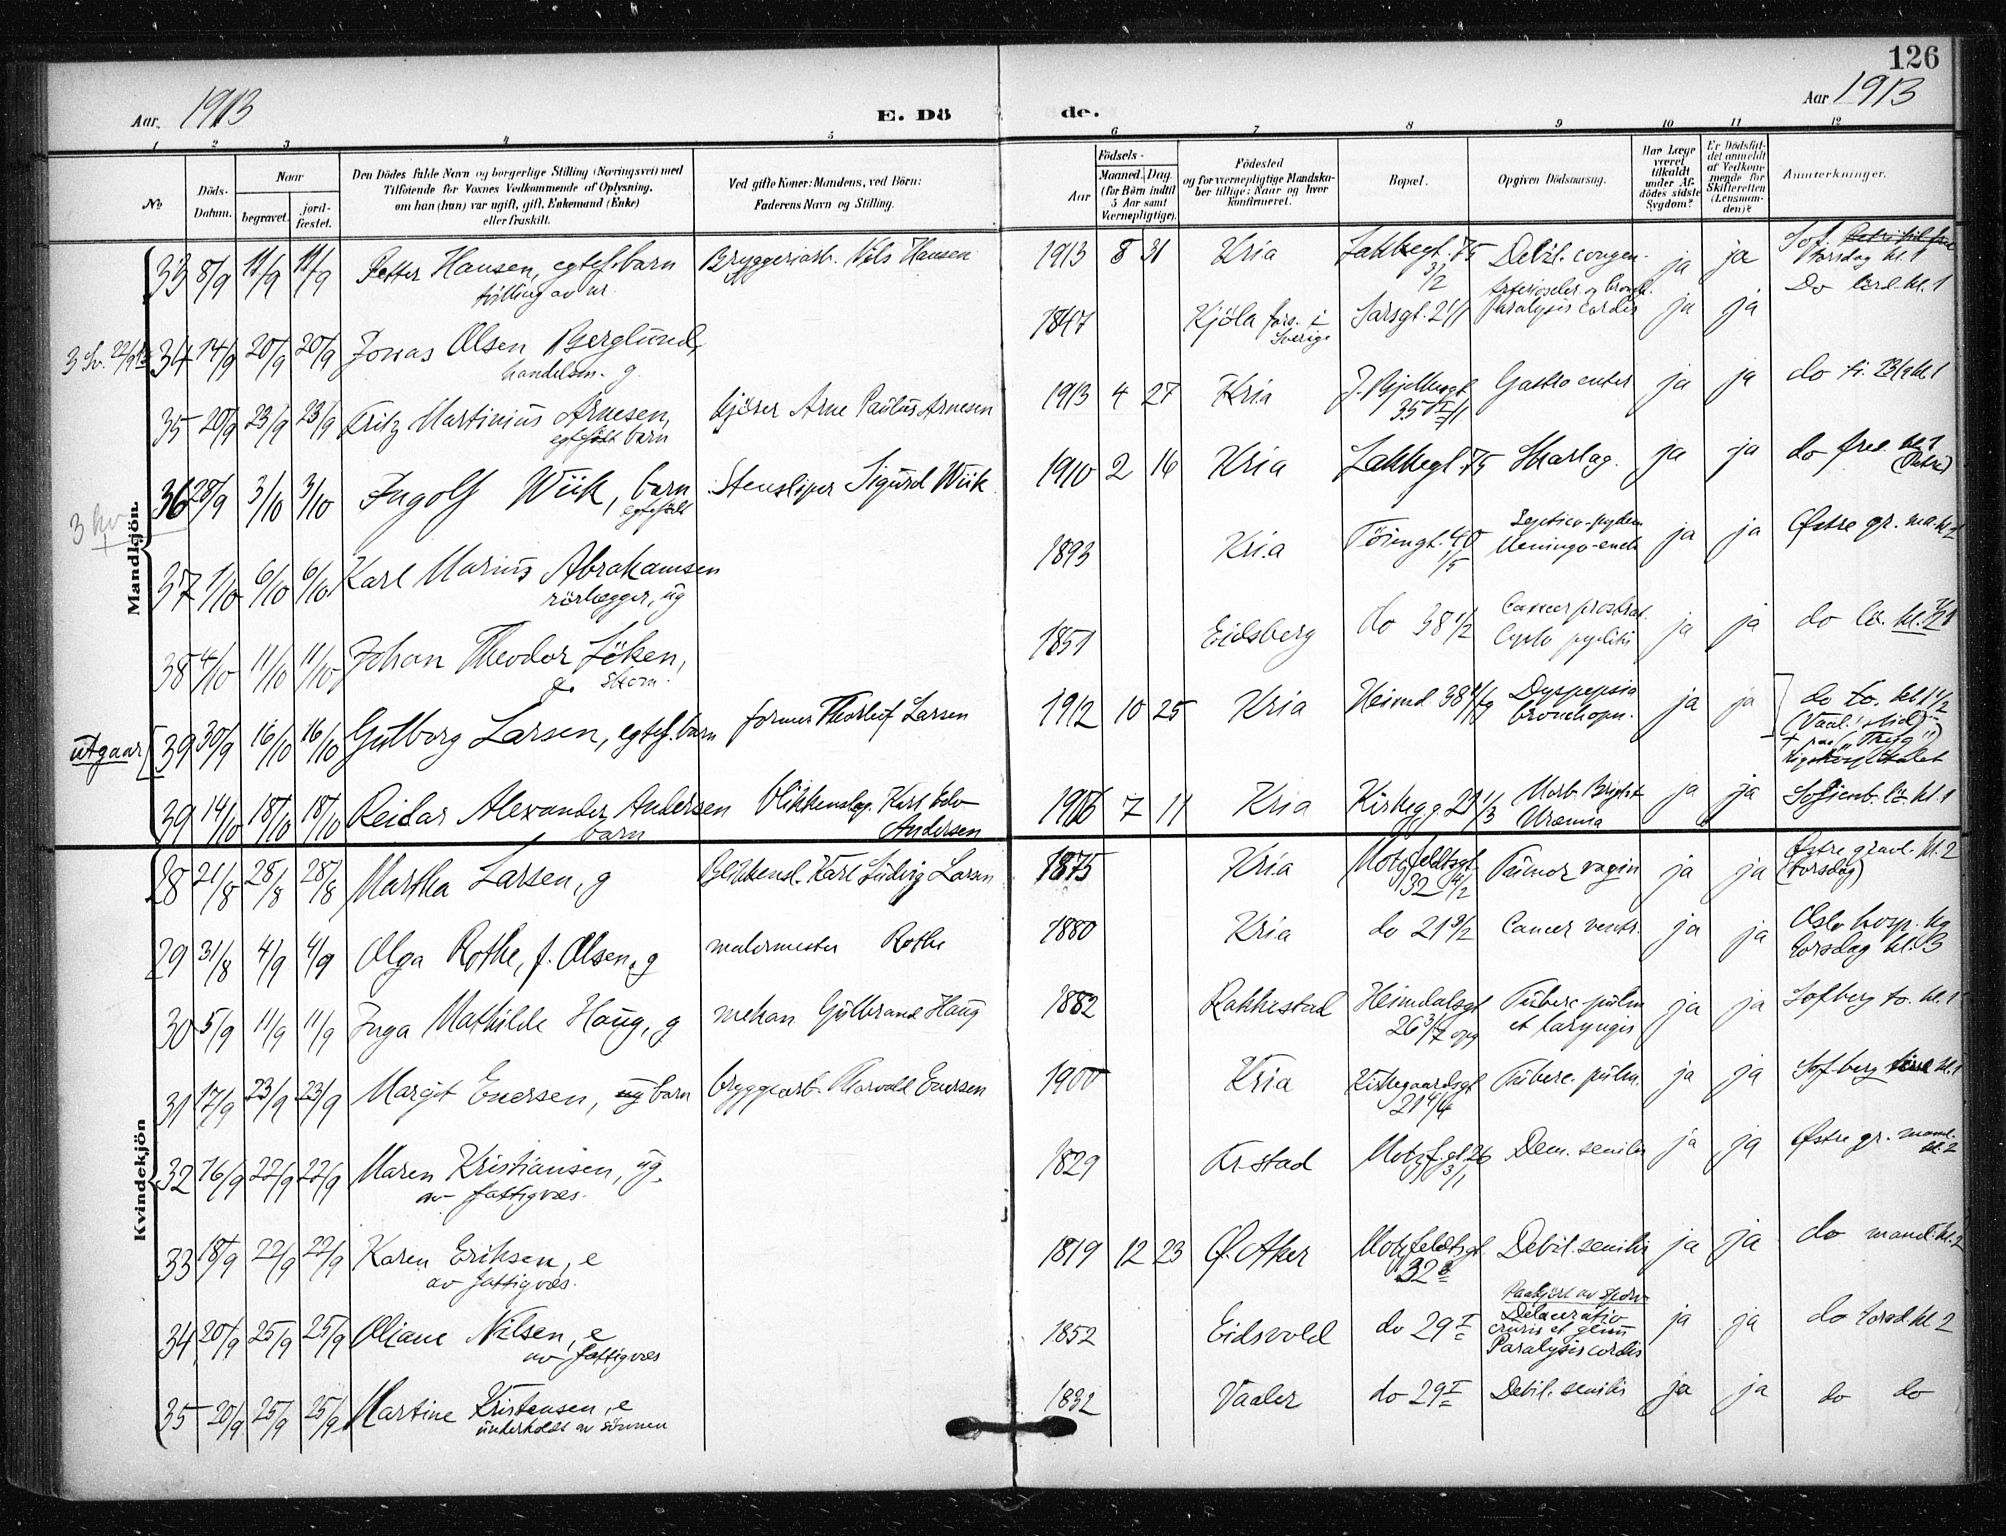 126
Aar 1913 E. Dö de. Aar 1913
1 2 3 4 5 6 7 8 9 10 11 12
No
Döds-Datum.
Naar
begravet.
jord-fæstet.
Den Dödes fulde Navn og borgerlige Stilling (Næringsvei) med
Tilföiende for Voxnes Vedkommende af Oplysning,
om han (hun) var ugift, gift, Enkemand (Enke)
eller fraskilt.
Ved gifte Koner: Mandens, ved Börn:
Faderens Navn og Stilling.
Födsels-
Aar
Maaned. Dag.
(for Börn indtil
5 Aar samt
Værnepligtige).
Födested
og for værnepligtige Mandska-
ber tillige: Naar og hvor
konfirmeret.
Bopæl.
Opgiven Dödsaarsag.
Har Læge
været
tilkaldt
under Af-
dödes sidste
Sygdom?
Er Dödsfal-
det anmeldt
af Vedkom-
mende for
Skifteretten
(Lensman-
den)?
Anmærkninger.
Mandkjön.
33 8/9 11/9 11/9 Petter Hansen, egtef. barn Bryggeriarb. Nils Hansen 1913 8 31 Kria Lakkegt. 75 Debil. congen. ja ja Sof.
tvilling av nr. 3/2 torsdag kl. 1
3 Sv. 22/9 13 34 14/9 20/9 20/9 Jonas Olsen Berglund, 1847 Kjöla fors. i Sarsgt. 21/1 Paralysis cordis ja ja Do lörd. kl. 1
handelsm. g. Sverige
35 20/9 23/9 23/9 Fritz Martinius Arnesen, kjörer Arne Paulus Arnesen 1913 4 27 Kria J. Bjelkesgt. Gastro enter ja ja do ti. 23/9 kl. 1
egtefödt barn 35
36 28/9 3/10 3/10 Ingolf Wiik, barn Stensliper Sigurd Wiik 1910 2 16 Kria Lakkegt. 75 Skarlag. ja ja do fred. kl. 1
egtefödt (Petri)
37 1/10 6/10 6/10 Karl Marius Abrahamsen 1893 Kria Töiengt. 40 Septico-pyæm ja ja Østre gr. ma. kl. 2
rörlægger, ug 1/5 Meningo-
38 4/10 11/10 11/10 Johan Theodor Löken, 1851 Eidsberg do 38 1/2 Cancer prostrat. ja ja do lö. kl.
g. skom. Cysto pyelitis
utgaar 39 30/9 16/10 16/10 Gutborg Larsen, egtef. barn former Thorleif Larsen 1912 10 25 Kria Heimd. 38 Dyspepsia ja ja do to. kl. 1 1/2
bronchopn.
Rigshospitalet
39 14/10 18/10 18/10 Reidar Alexander Andersen Blikkenslag. Karl Edv. 1906 7 11 Kria Kirkeg.g. 21 1/3 Morb. Brighti ja ja Sofienb. lö kl. 1
barn Andersen Uræmia
Kvindekjön
28 21/8 28/8 28/8 Martha Larsen, g Blikkensl. Karl Ludvig Larsen 1875 Kria Motzfeldtsgt. Tumor vagin ja ja Østre gravl. kl. 2
32 (torsdag)
29 31/8 4/9 4/9 Olga Rothe, f. Olsen, g malermester Rothe 1880 Kria do 21 Cancer ventr. ja ja Oslo hosp. kg
torsdag kl. 3
30 5/9 11/9 11/9 Inga Mathilde Haug, g mekan Gulbrand Haug 1882 Rakkestad Heimdalsgt Tuberc. pulm ja ja Sofberg to. kl. 1
26 3/7 opg et laryngis
31 17/9 23/9 23/9 Margit Enersen, ug barn bryggearb. Thorvald Enersen 1900 Kria Kirkegaardsgt Tuberc. pulm. ja ja Sofberg kl. 1
21 4/4
32 16/9 22/9 22/9 Maren Kristiansen, ug. 1829 Kr-stad Motzf.gt. 26 Dem. senilis ja ja Østre gr. mand.
av fattigvæs. 3/1 kl. 2
33 18/9 22/9 22/9 Karen Eriksen, e 1819 12 23 Ø. Aker Motzfeldtsgt. Debil. senilis ja ja do mand. kl. 2
av fattigvæs. 32
34 20/9 25/9 25/9 Oliane Nilsen, e 1852 Eidsvold do 29 I Paakjört av sporv. ja ja do torsd. kl. 2
av fattigvæs Delaceratio
cruris et genu
Paralysis cordis
35 20/9 25/9 25/9 Martine Kristensen, e 1832 Vaaler do 29 I Debil. senilis ja ja do do
underholdt av sönnen